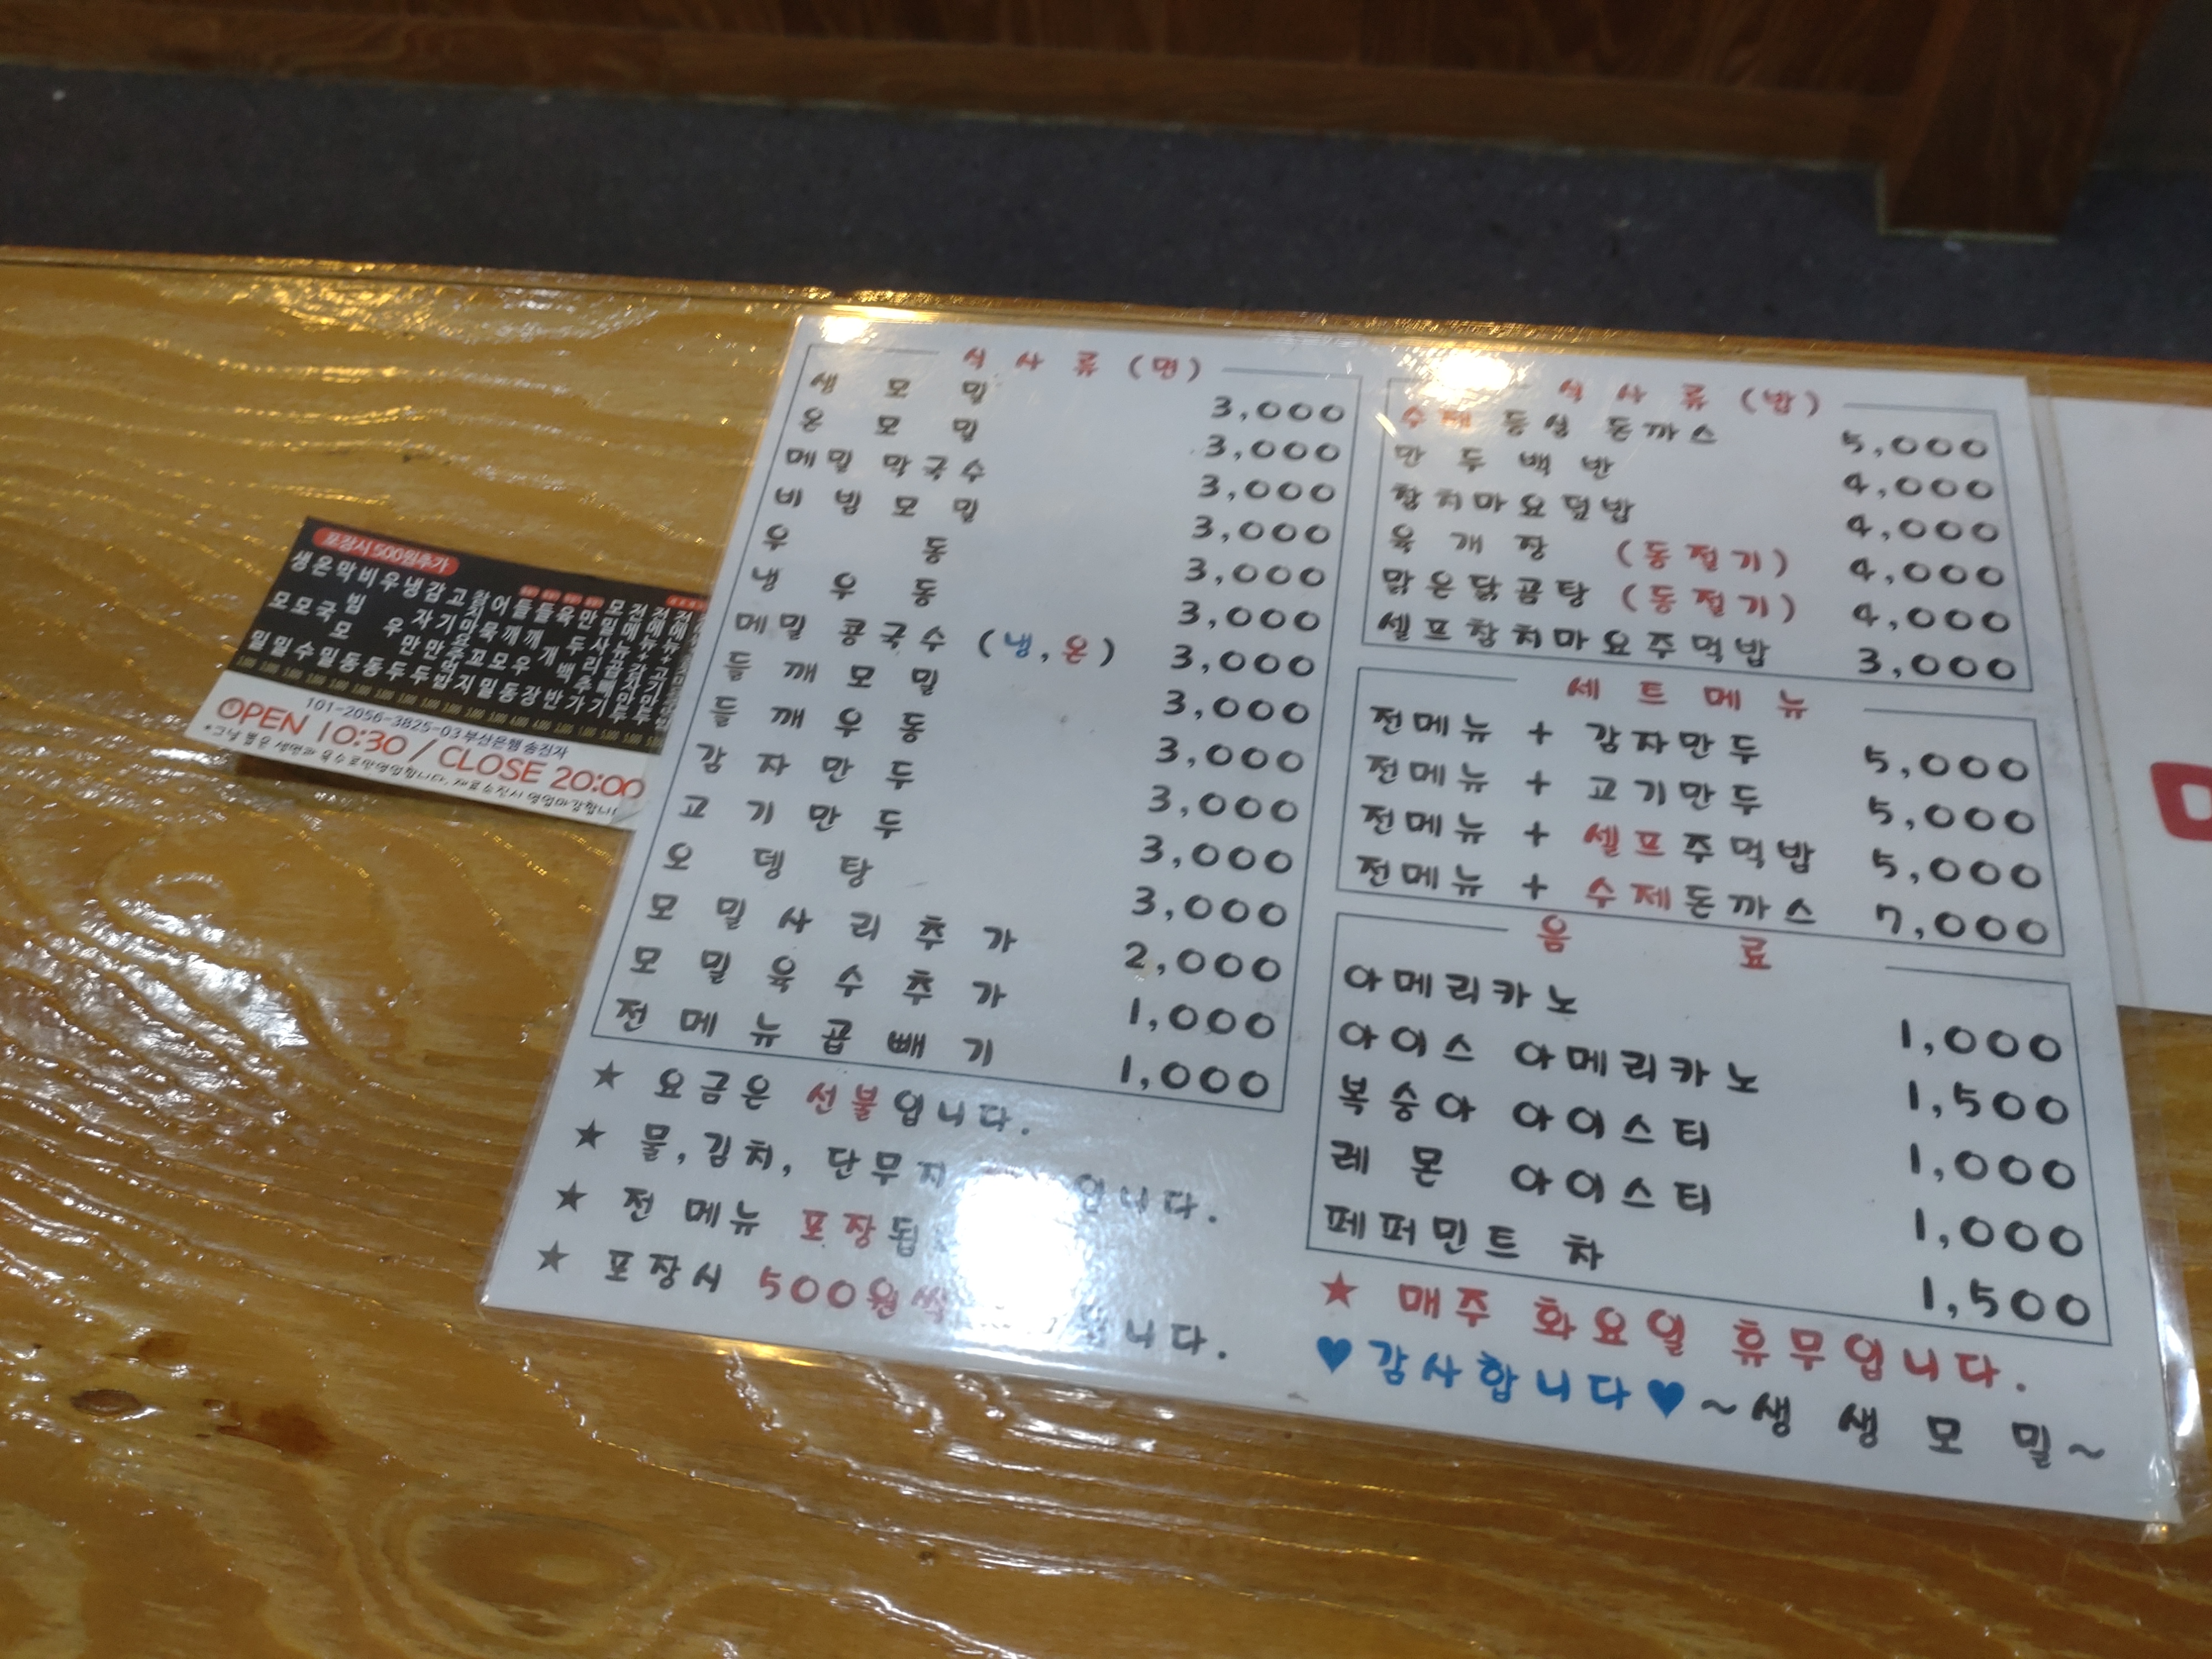 식사류(면)
생모밀 3,000
온모밀 3,000
메밀막국수 3,000
비빔모밀 3,000
우동 3,000
냉우동 3,000
메밀콩국수 (냉,온) 3,000
들깨모밀 3,000
들깨우동 3,000
감자만두 3,000
고기만두 3,000
오뎅탕 3,000
모밀사리추가 2,000
모밀육수추가 1,000
전메뉴곱빼기 1,000
★ 요금은 선불입니다.
★ 물,김치,단무지 입니다.
★ 전 메뉴 포장됩
★ 포장시 500원씩 니다.
식사류(밥)
수제 등심 돈까스 5,000
만두백반 4,000
참치마요덮밥 4,000
육개장 (동절기) 4,000
맑은닭곰탕 (동절기) 4,000
셀프참치마요주먹밥 3,000
세트메뉴
전메뉴 + 감자만두 5,000
전메뉴 + 고기만두 5,000
전메뉴 + 셀프주먹밥 5,000
전메뉴 + 수제돈까스 7,000
음료
아메리카노 1,000
아이스 아메리카노 1,500
복숭아 아이스티 1,000
레몬 아이스티 1,000
페퍼민트 차 1,500
★ 매주 화요일 휴무입니다.
♥감사합니다♥~생생모밀~
포장시 500원추가
생모밀
온모밀
막국수
비빔모밀
우동
냉우동
감자만두
고기만두
101-2056-3825-03 부산은행 송진자
OPEN 10:30 / CLOSE 20:00
재료소진시 영업마감합니